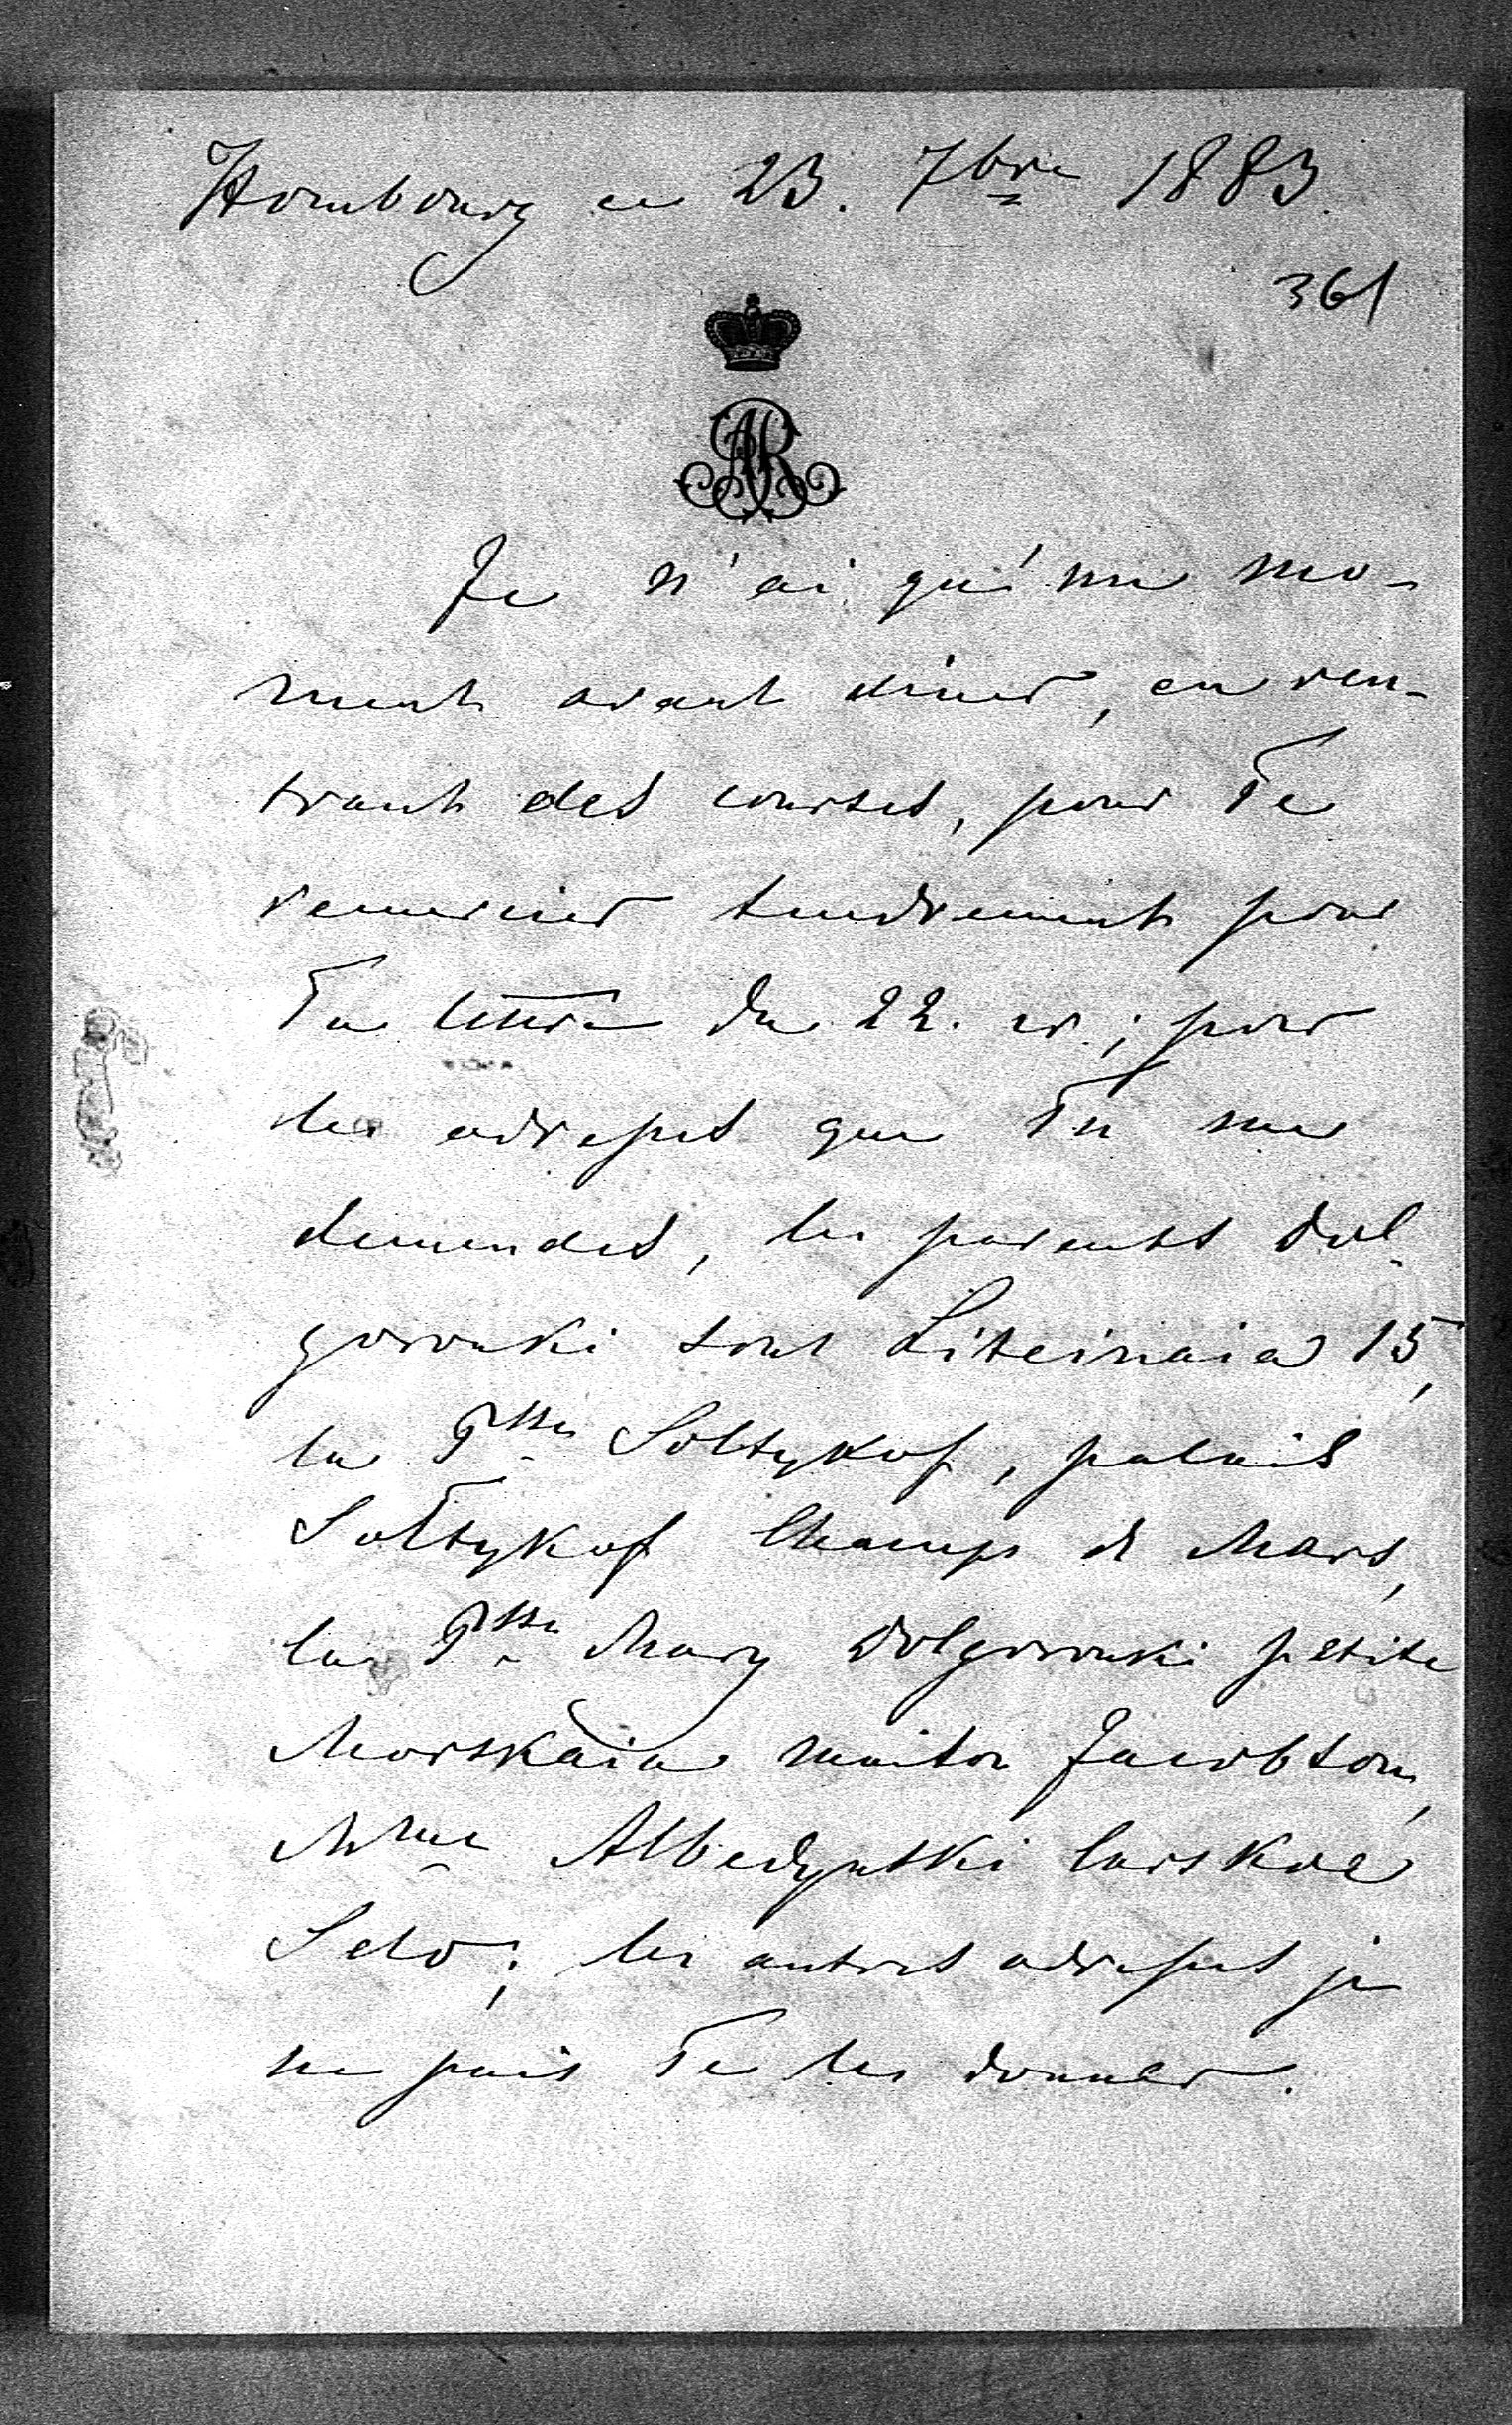 Hombourg ce 23. 7bre 1883.
361
AR
Je n'ai qu'un mo-
ment avant diner, en ren-
trant des courses, pour Te
remercier tendrement pour
Ta lettre du 22. cr.; pour
les adresses que Tu me
demandes, les parents Dol-
gorouki sont Liteinaia 15,
la Psse Soltykof, palais
Soltykof Champs de Mars,
la Psse Mary Dolgorouki petite
Morskaia maison Jacobson,
Mme Albedynski Carskoe
Selo; les autres adresses je
ne puis Te les donner.